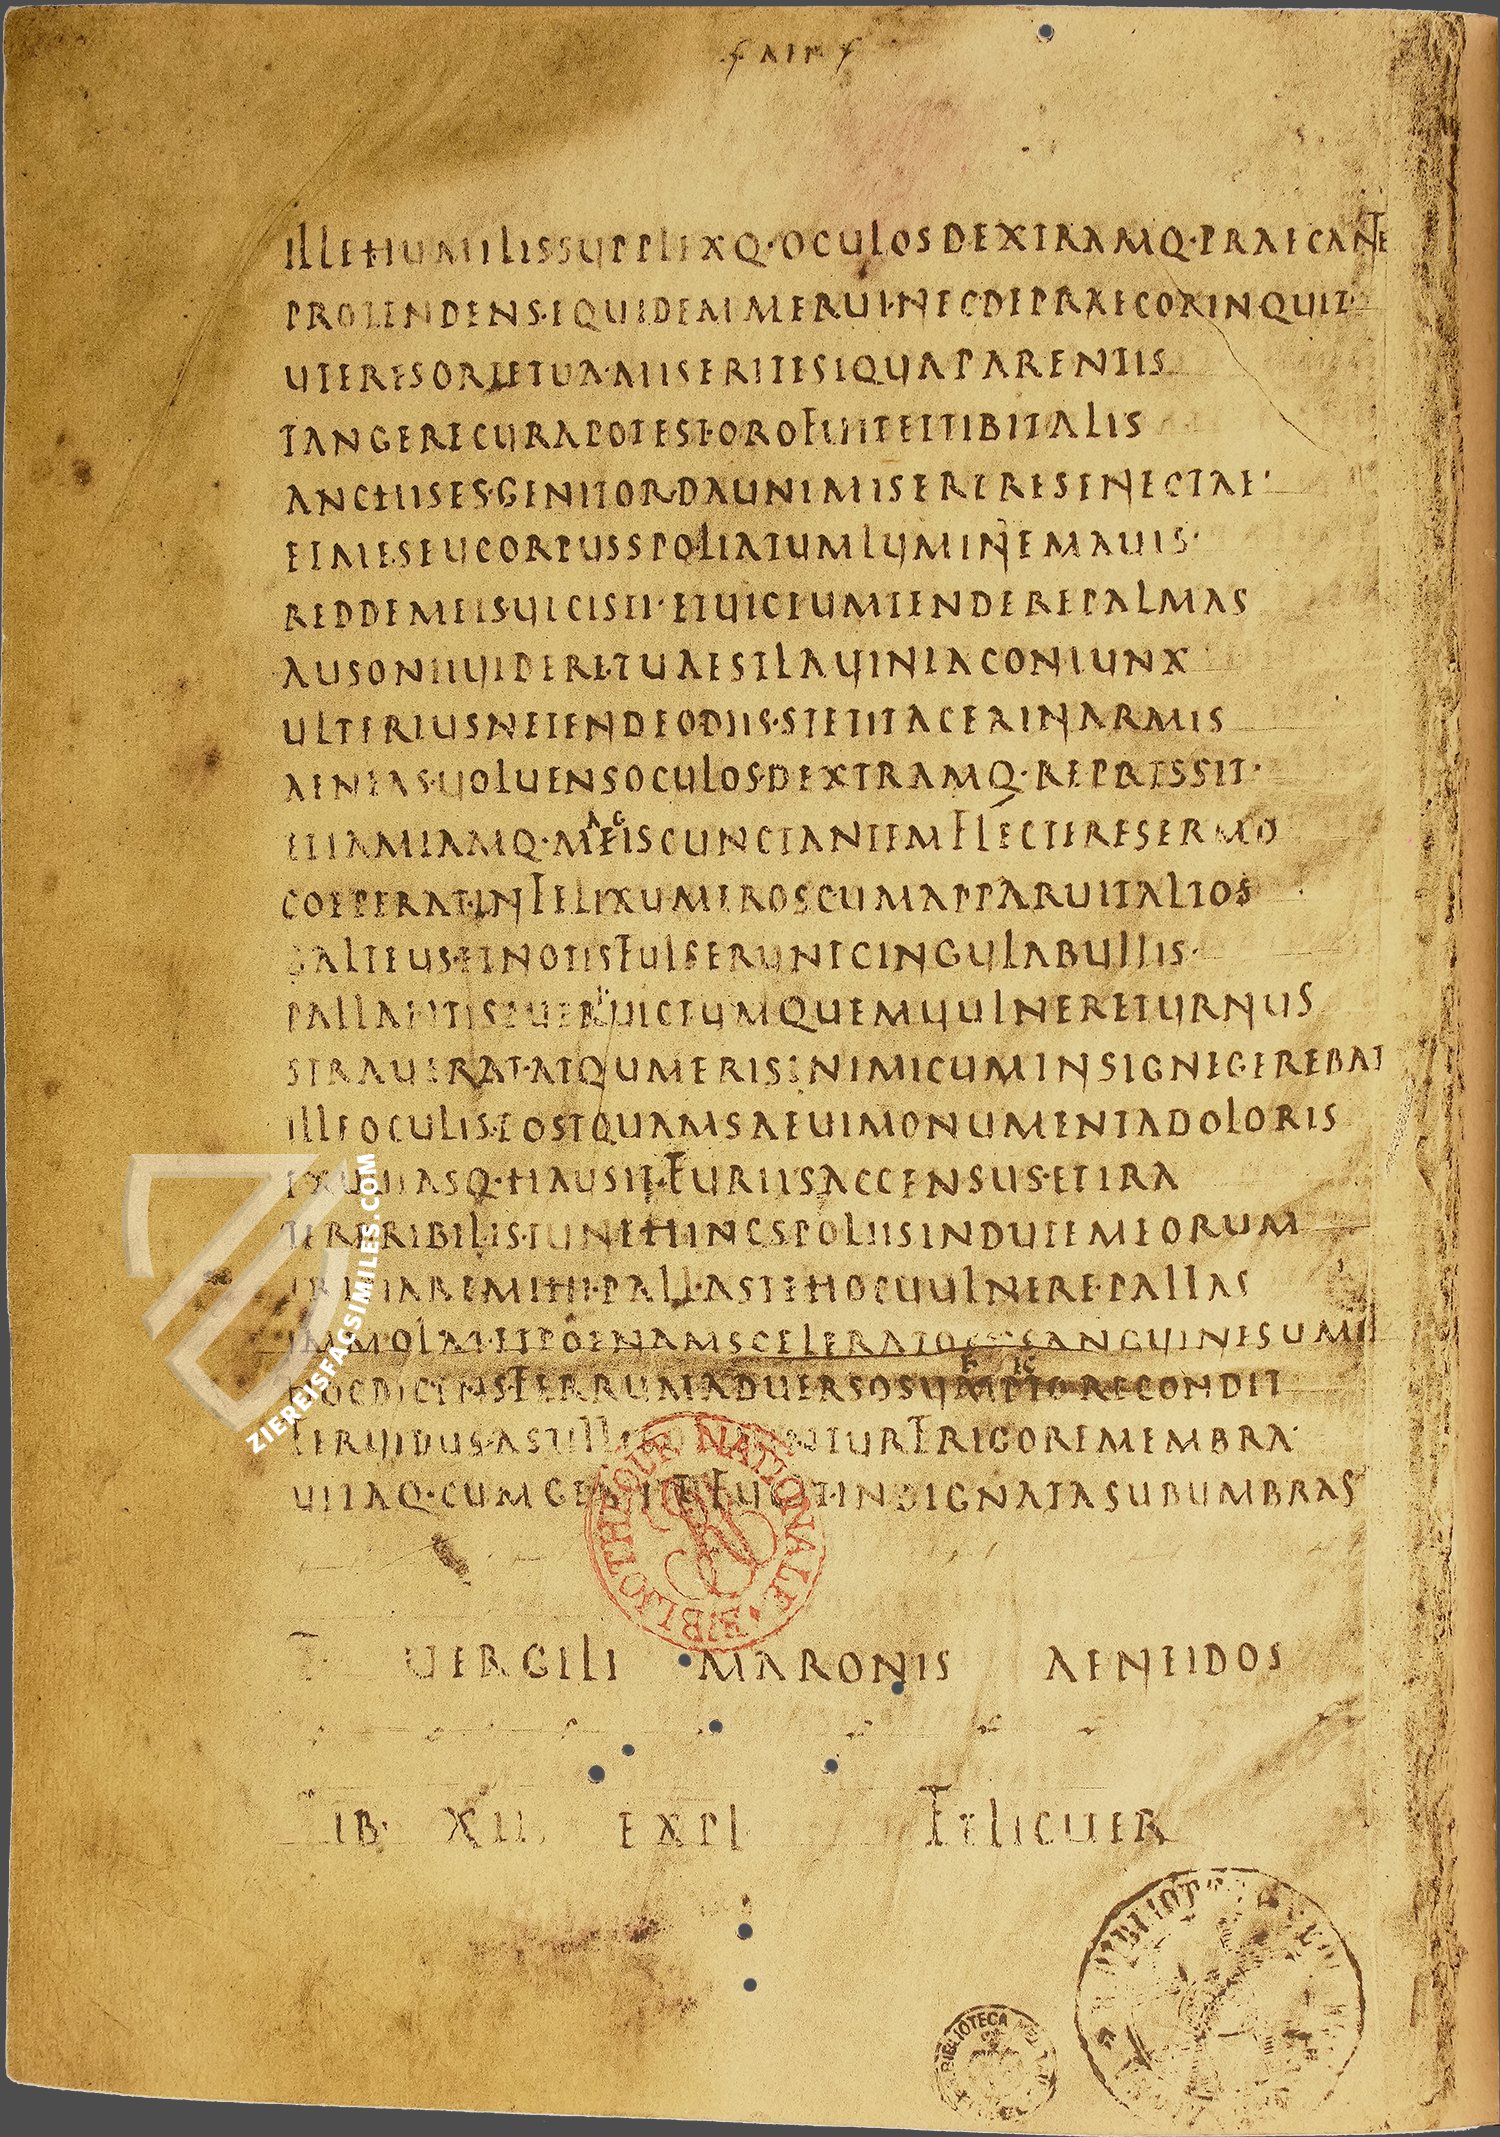 ILLE HUMILIS SUPPLEXQ· OCULOS DEXTRAMQ· PRAECANTE
PROTENDENS· EQUIDEM MERUI· NEC DEPRAECOR INQUIT·
UTERE SORTE TUA· MISERI TE SI QUA PARENTIS
TANGERE CURA POTEST· ORO FUIT ET TIBI TALIS
ANCHISES· GENITOR· DAUNI MISERERE SENECTAE·
ET ME· SEU CORPUS SPOLIATUM LUMINE MAUIS·
REDDE MEIS· UICISTI· ET UICTUM TENDERE PALMAS
AUSONII UIDERE· TUA EST LAUINIA CONIUNX
ULTERIUS NE TENDE ODIIS· STETIT ACER IN ARMIS
AENEAS· UOLUENS OCULOS· DEXTRAMQ· REPRESSIT·
ETIAM IAMQ· MEIS CUNCTANTEM FLECTERE SERMO
AG
COEPERAT· INFELIX UMEROS CUM APPARUIT ALTOS
BALTEUS· ET NOTIS FULSERUNT CINGULA BULLIS·
PALLANTIS PUERI UICTUM QUEM UULNERE TURNUS
STRAUERAT· ATQ UMERIS INIMICUM INSIGNE GEREBAT
ILLE OCULIS· POSTQUAM SAEUI MONUMENTA DOLORIS
EXUUIASQ· HAUSIT· FURIIS ACCENSUS· ET IRA
TERRIBILIS· TUNE HINC SPOLIIS INDUTE MEORUM
ERIPIARE MIHI· PALLAS TE HOC UULNERE· PALLAS
IMMOLAT· ET POENAM SCELERATO SANGUINE SUMIT
HOC DICENS FERRUM ADUERSO SUB RECONDIT
FERUIDUS· AST ILLI FRIGORE MEMBRA·
UITAQ· CUM GEMITU FUGIT· INDIGNATA SUB UMBRAS
UERGILI MARONIS AENEIDOS
LIB· XII EXPL FELICUER
BIBLIOTHEQUE NATIONALE
BIBLIOTECA
ZIEREISFACSIMILES.COM